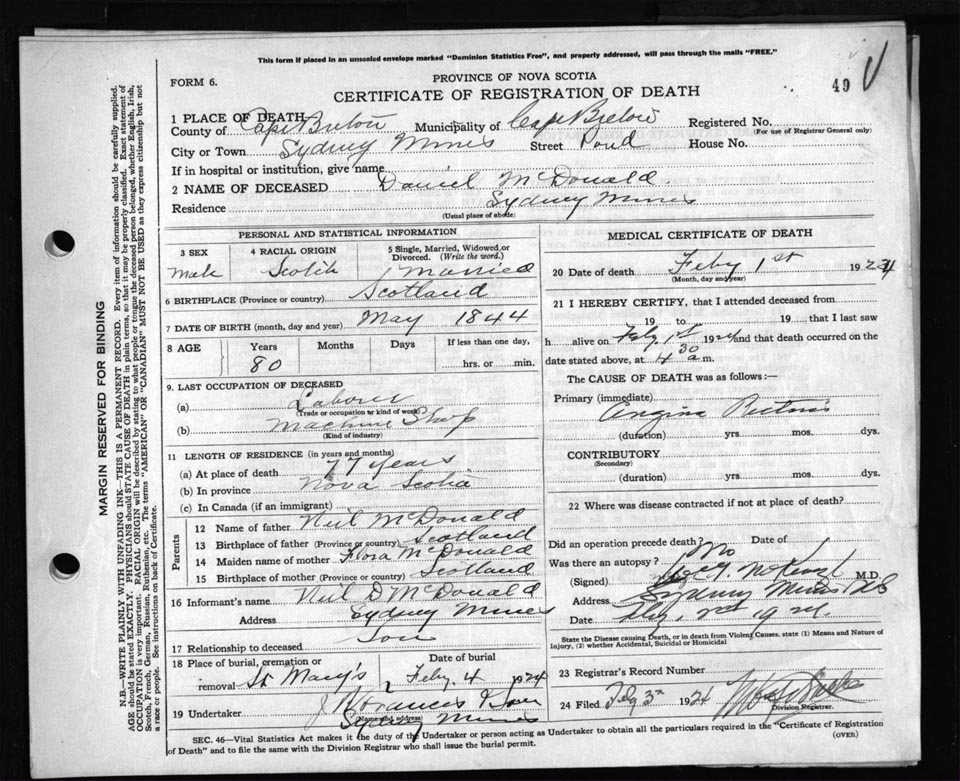 This form if placed in an unsealed envelope marked "Dominion Statistics Free", and properly addressed, will pass through the mails "FREE."
FORM 6.
PROVINCE OF NOVA SCOTIA
49
CERTIFICATE OF REGISTRATION OF DEATH
1 PLACE OF DEATH
County of Cape Breton Municipality of Cape Breton Registered No.
(For use of Registrar General only)
City or Town Sydney Mines Street Pond House No.
If in hospital or institution, give name
2 NAME OF DECEASED Daniel McDonald
Residence Sydney Mines
(Usual place of abode)
PERSONAL AND STATISTICAL INFORMATION
3 SEX 4 RACIAL ORIGIN 5 Single, Married, Widowed or Divorced. (Write the word.)
Male Scotch Married
6 BIRTHPLACE (Province or country) Scotland
7 DATE OF BIRTH (month, day and year) May 1844
8 AGE Years Months Days If less than one day,
80 hrs. or min.
9. LAST OCCUPATION OF DECEASED
(a) Laborer
(Trade or occupation or kind of work)
(b) Machine Shop
(Kind of industry)
11 LENGTH OF RESIDENCE (in years and months)
(a) At place of death 77 years
(b) In province Nova Scotia
(c) In Canada (if an immigrant)
Parents
12 Name of father Neil McDonald
13 Birthplace of father (Province or country) Scotland
14 Maiden name of mother Flora McDonald
15 Birthplace of mother (Province or country) Scotland
16 Informant's name Neil D McDonald
Address Sydney Mines
17 Relationship to deceased Son
18 Place of burial, cremation or Date of burial
removal St Mary's Feby. 4 1924
19 Undertaker
(Name and address)
Sydney Mines
MEDICAL CERTIFICATE OF DEATH
20 Date of death Feby 1st 1924
(Month, day and year)
21 I HEREBY CERTIFY, that I attended deceased from
19 to 19 that I last saw
h alive on Feby 1st 1924 and that death occurred on the
date stated above, at 4 30 a m.
The CAUSE OF DEATH was as follows:—
Primary (immediate)
Angina Pectoris
(duration) yrs. mos. dys.
CONTRIBUTORY
(Secondary)
(duration) yrs. mos. dys.
22 Where was disease contracted if not at place of death?
Did an operation precede death? No Date of
Was there an autopsy?
(Signed) M.D.
Address Sydney Mines NS
Date
State the Disease causing Death, or in death from Violent Causes, state (1) Means and Nature of
Injury, (2) whether Accidental, Suicidal or Homicidal
23 Registrar's Record Number
24 Filed Feby 3rd 1924
Division Registrar.
SEC. 46—Vital Statistics Act makes it the duty of the Undertaker or person acting as Undertaker to obtain all the particulars required in the "Certificate of Registration
of Death" and to file the same with the Division Registrar who shall issue the burial permit.
(OVER)
MARGIN RESERVED FOR BINDING
N.B.—WRITE PLAINLY WITH UNFADING INK—THIS IS A PERMANENT RECORD. Every item of information should be carefully supplied.
AGE should be stated EXACTLY. PHYSICIANS should STATE CAUSE OF DEATH in plain terms, so that it may be properly classified. Exact statement of
OCCUPATION is very important. RACIAL ORIGIN will be described by stating to what people or tongue the deceased person belonged, whether English, Irish,
Scotch, French, German, Russian, Ruthenian, etc. The terms "AMERICAN" OR "CANADIAN" MUST NOT BE USED as they express citizenship but not
a race or people. See instructions on back of Certificate.